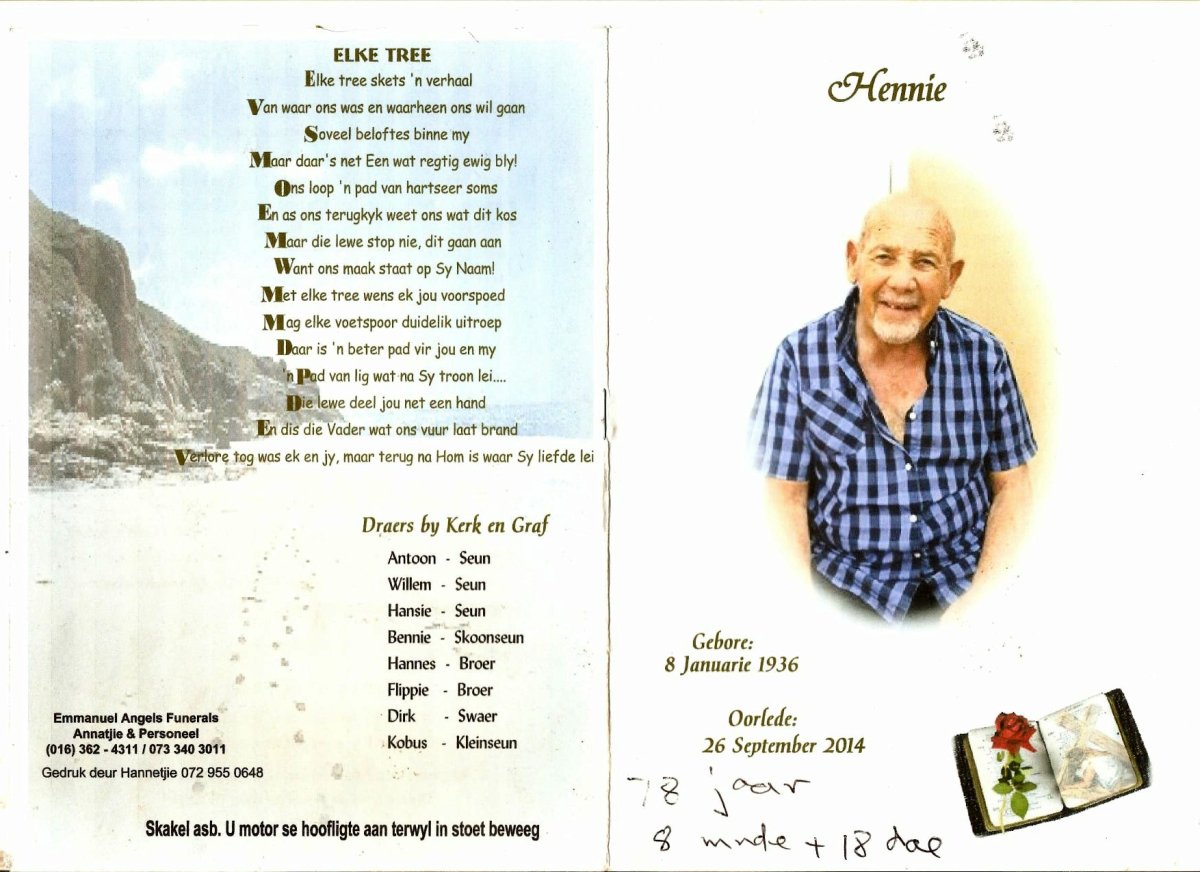 ELKE TREE
Elke tree skets 'n verhaal
Van waar ons was en waarheen ons wil gaan
Soveel beloftes binne my
Maar daar's net Een wat regtig ewig bly!
Ons loop 'n pad van hartseer soms
En as ons terugkyk weet ons wat dit kos
Maar die lewe stop nie, dit gaan aan
Want ons maak staat op Sy Naam!
Met elke tree wens ek jou voorspoed
Mag elke voetspoor duidelik uitroep
Daar is 'n beter pad vir jou en my
'n Pad van lig wat na Sy troon lei....
Die lewe deel jou net een hand
En dis die Vader wat ons vuur laat brand
Verlore tog was ek en jy, maar terug na Hom is waar Sy liefde lei
Draers by Kerk en Graf
Antoon - Seun
Willem - Seun
Hansie - Seun
Bennie - Skoonseun
Hannes - Broer
Flippie - Broer
Dirk - Swaer
Kobus - Kleinseun
Emmanuel Angels Funerals
Annatjie & Personeel
(016) 362 - 4311 / 073 340 3011
Gedruk deur Hannetjie 072 955 0648
Skakel asb. U motor se hoofligte aan terwyl in stoet beweeg
Hennie
Gebore:
8 Januarie 1936
Oorlede:
26 September 2014
78 jaar
8 mnde + 18 dae